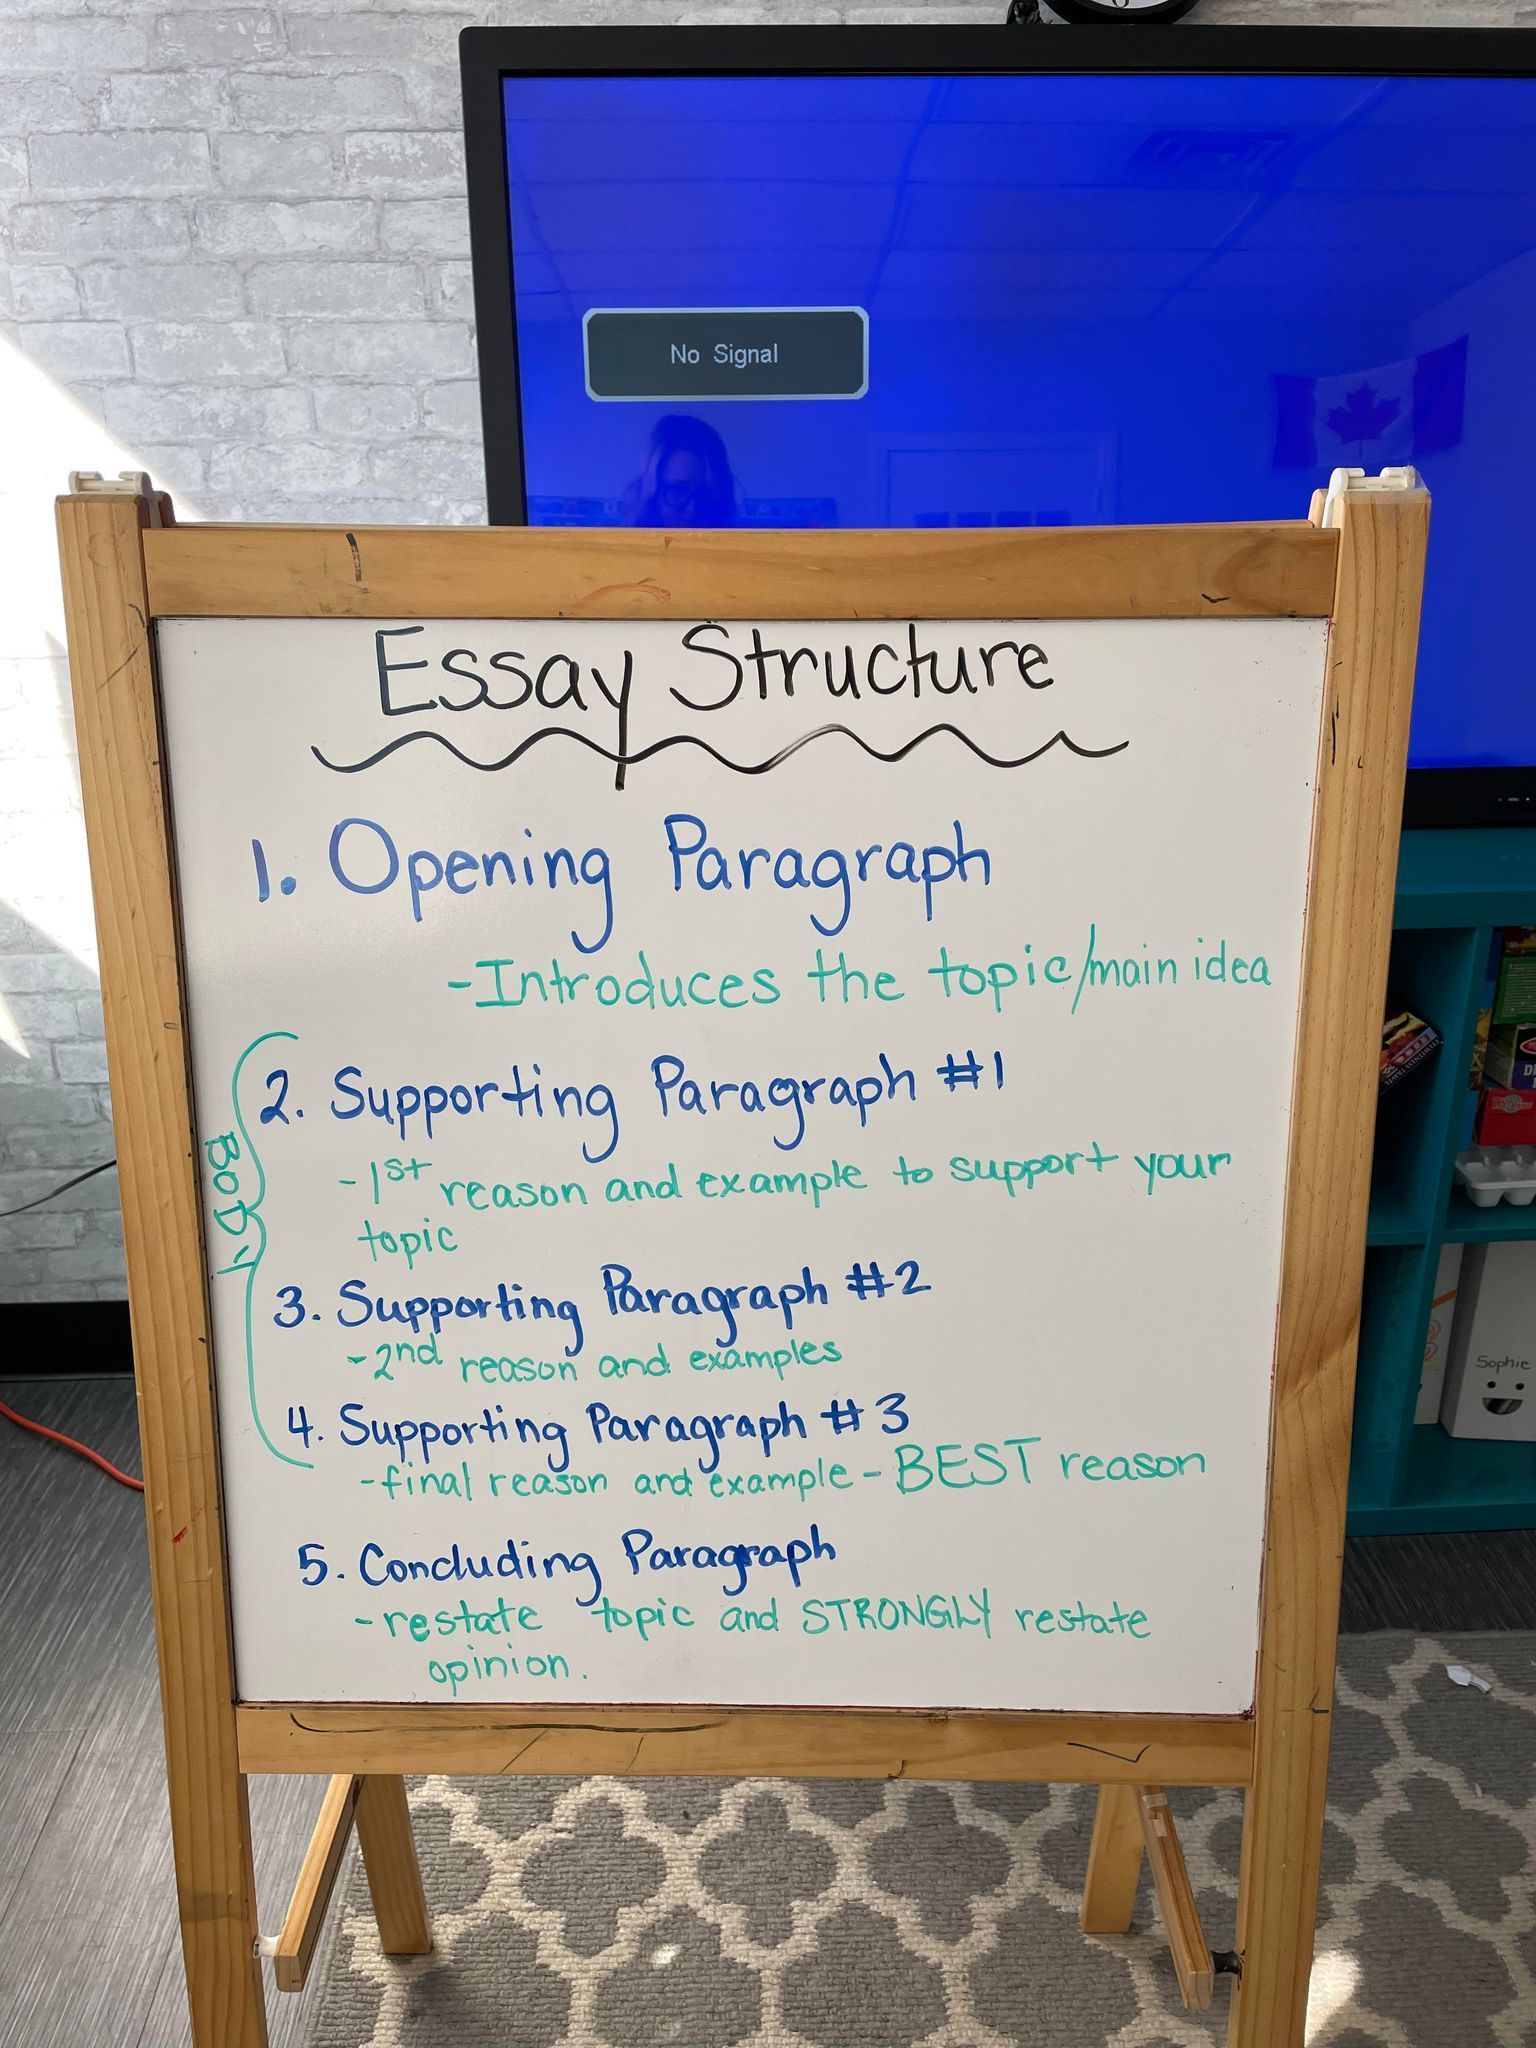 No Signal
Essay Structure
1. Opening Paragraph
-Introduces the topic/main idea
BODY
2. Supporting Paragraph #1
-1st reason and example to support your
topic
3. Supporting Paragraph #2
-2nd reason and examples
4. Supporting Paragraph #3
-final reason and example - BEST reason
5. Concluding Paragraph
-restate topic and STRONGLY restate
opinion.
Sophie